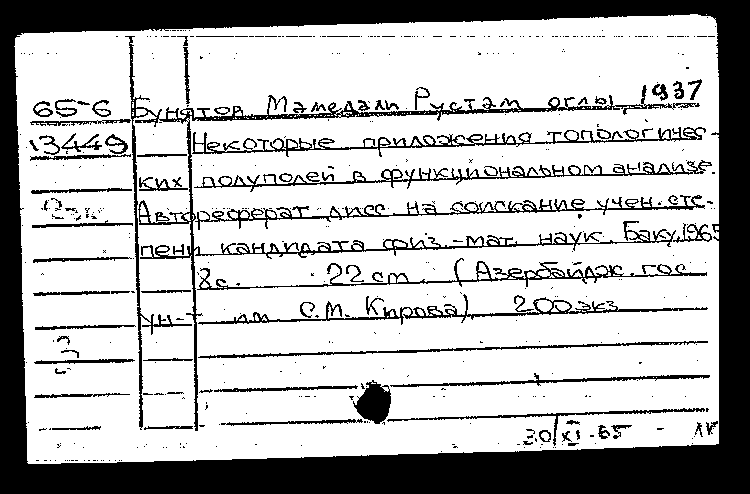 65-6 Бунятов Мамедали Рустам оглы, 1937
13449 Некоторые приложения топологичес-
ких полуполей в функциональном анализе.
2 экз. Автореферат дисс. на соискание учен. сте-
пени кандидата физ.-мат. наук. Баку, 1965
8 с. 22 cm. (Азербайдж. гос
ун-т им С.М. Кирова). 200 экз
30/XI-65 -